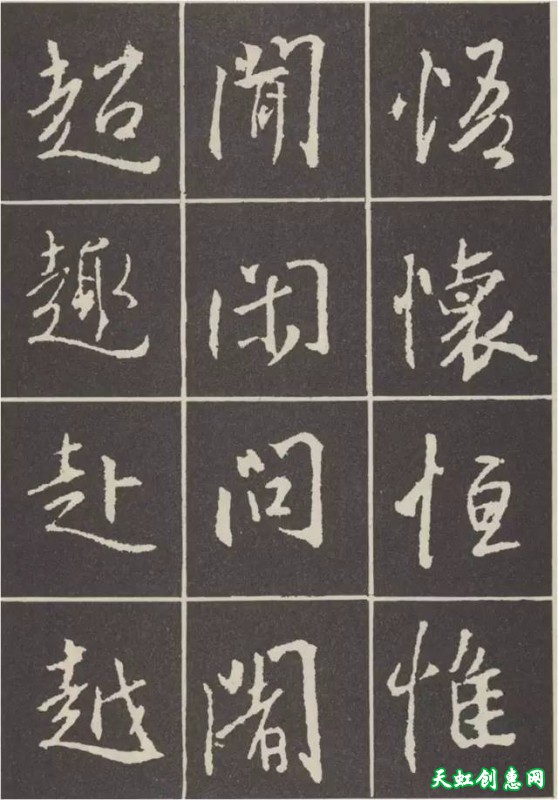 悟懷恒惟
閒閑問闍
超趣赴越
天虹创惠网